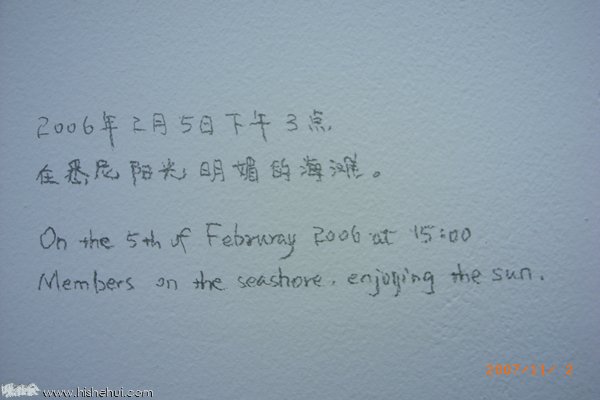 2006年2月5日下午3点
在悉尼阳光明媚的海滩。
On the 5th of Februray 2006 at 15:00
Members on the seashore, enjoying the sun.
www.hishehui.com